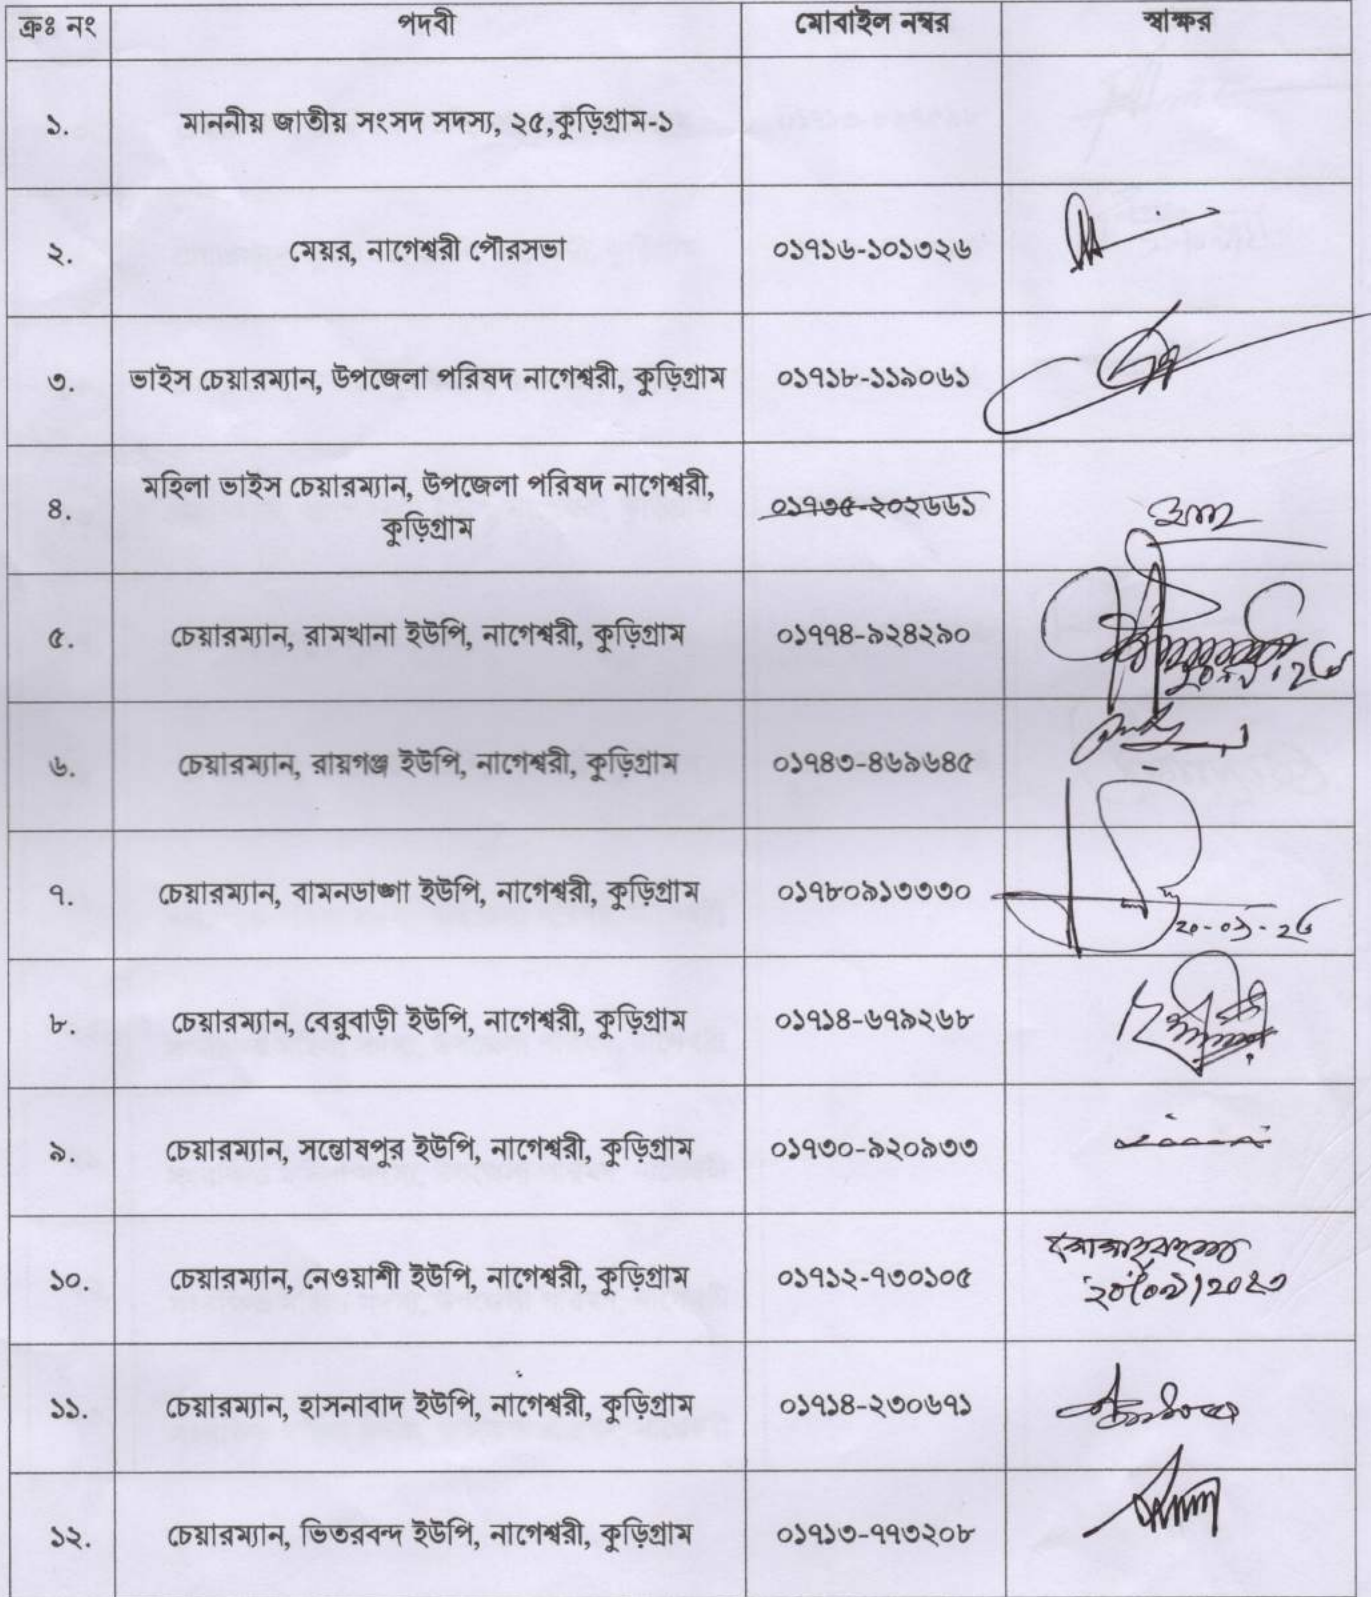 ক্রঃ নং পদবী মোবাইল নম্বর স্বাক্ষর
১. মাননীয় জাতীয় সংসদ সদস্য, ২৫,কুড়িগ্রাম-১
২. মেয়র, নাগেশ্বরী পৌরসভা ০১৭১৬-১০১৩২৬
৩. ভাইস চেয়ারম্যান, উপজেলা পরিষদ নাগেশ্বরী, কুড়িগ্রাম ০১৭১৮-১১৯০৬১
মহিলা ভাইস চেয়ারম্যান, উপজেলা পরিষদ নাগেশ্বরী,
৪. কুড়িগ্রাম ০১৭৩৫-২০২৬৬১
৫. চেয়ারম্যান, রামখানা ইউপি, নাগেশ্বরী, কুড়িগ্রাম ০১৭৭৪-৯২৪২৯০
৬. চেয়ারম্যান, রায়গঞ্জ ইউপি, নাগেশ্বরী, কুড়িগ্রাম ০১৭৪৩-৪৬৯৬৪৫
৭. চেয়ারম্যান, বামনডাঙ্গা ইউপি, নাগেশ্বরী, কুড়িগ্রাম ০১৭৮০৯১৩৩৩০
৮. চেয়ারম্যান, বেরুবাড়ী ইউপি, নাগেশ্বরী, কুড়িগ্রাম ০১৭১৪-৬৭৯২৬৮
৯. চেয়ারম্যান, সন্তোষপুর ইউপি, নাগেশ্বরী, কুড়িগ্রাম ০১৭৩০-৯২০৯৩৩
১০. চেয়ারম্যান, নেওয়াশী ইউপি, নাগেশ্বরী, কুড়িগ্রাম ০১৭১২-৭৩০১০৫
১১. চেয়ারম্যান, হাসনাবাদ ইউপি, নাগেশ্বরী, কুড়িগ্রাম ০১৭১৪-২৩০৬৭১
১২. চেয়ারম্যান, ভিতরবন্দ ইউপি, নাগেশ্বরী, কুড়িগ্রাম ০১৭১৩-৭৭৩২০৮